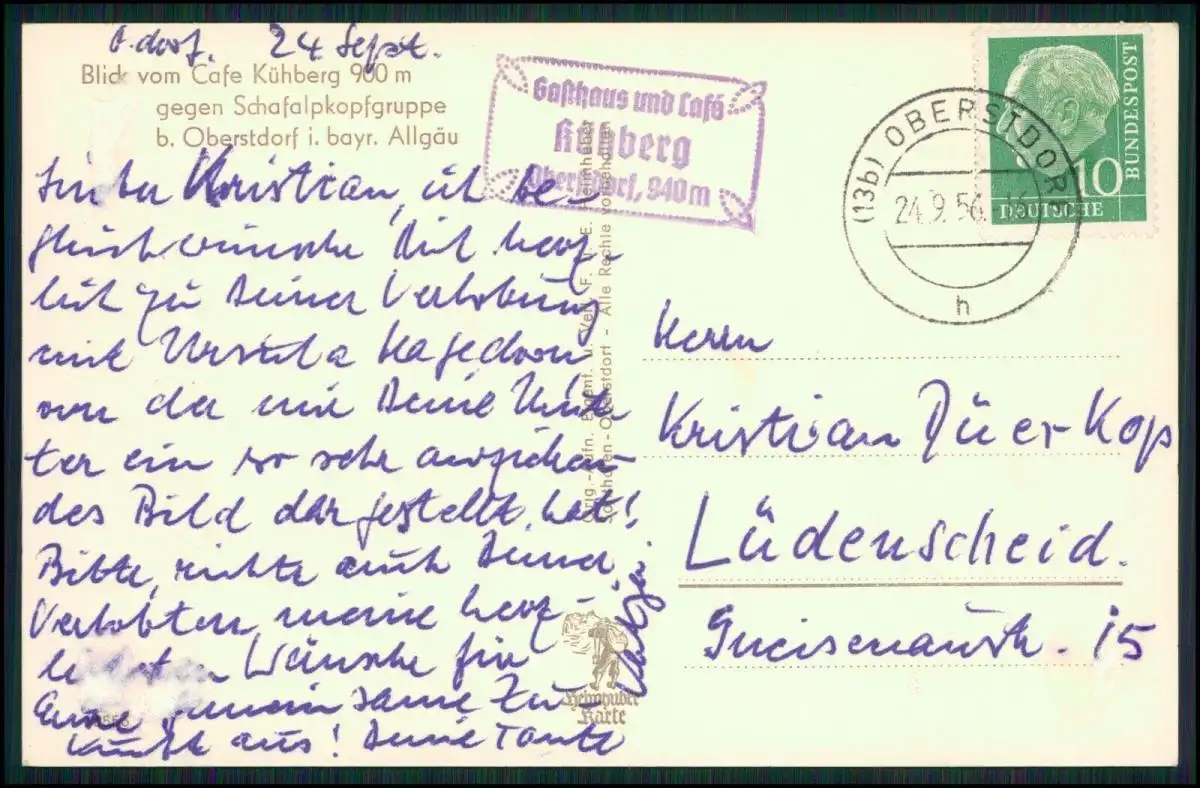 O.dorf. 24 Sept.
Blick vom Cafe Kühberg 900 m
gegen Schafalpkopfgruppe
b. Oberstdorf i. bayr. Allgäu
Gasthaus und Café
Kühberg
Oberstdorf, 940 m
(13b) OBERSTDORF
24.9.56
h
BUNDESPOST
10
DEUTSCHE
Kristian, ich be-
glückwünsche Dich herz-
lich zu Deiner Verlobung
mit Ursula Hagedorn
von der mir Deine Mut-
ter ein so sehr anziehen-
des Bild dargestellt hat!
Bitte, richte auch Deiner
Verlobten, meine herz-
lichsten Wünsche für
Eure gemeinsame Zu-
kunft aus! Deine Tante
Orig.-Aufn. Eigent. u. Verl. F. u. E. Heimhuber
Sonthofen-Oberstdorf - Alle Rechte vorbehalten
Heimhuber
Karte
Herrn
Kristian Düerkop
Lüdenscheid.
Gneisenaustr. 15